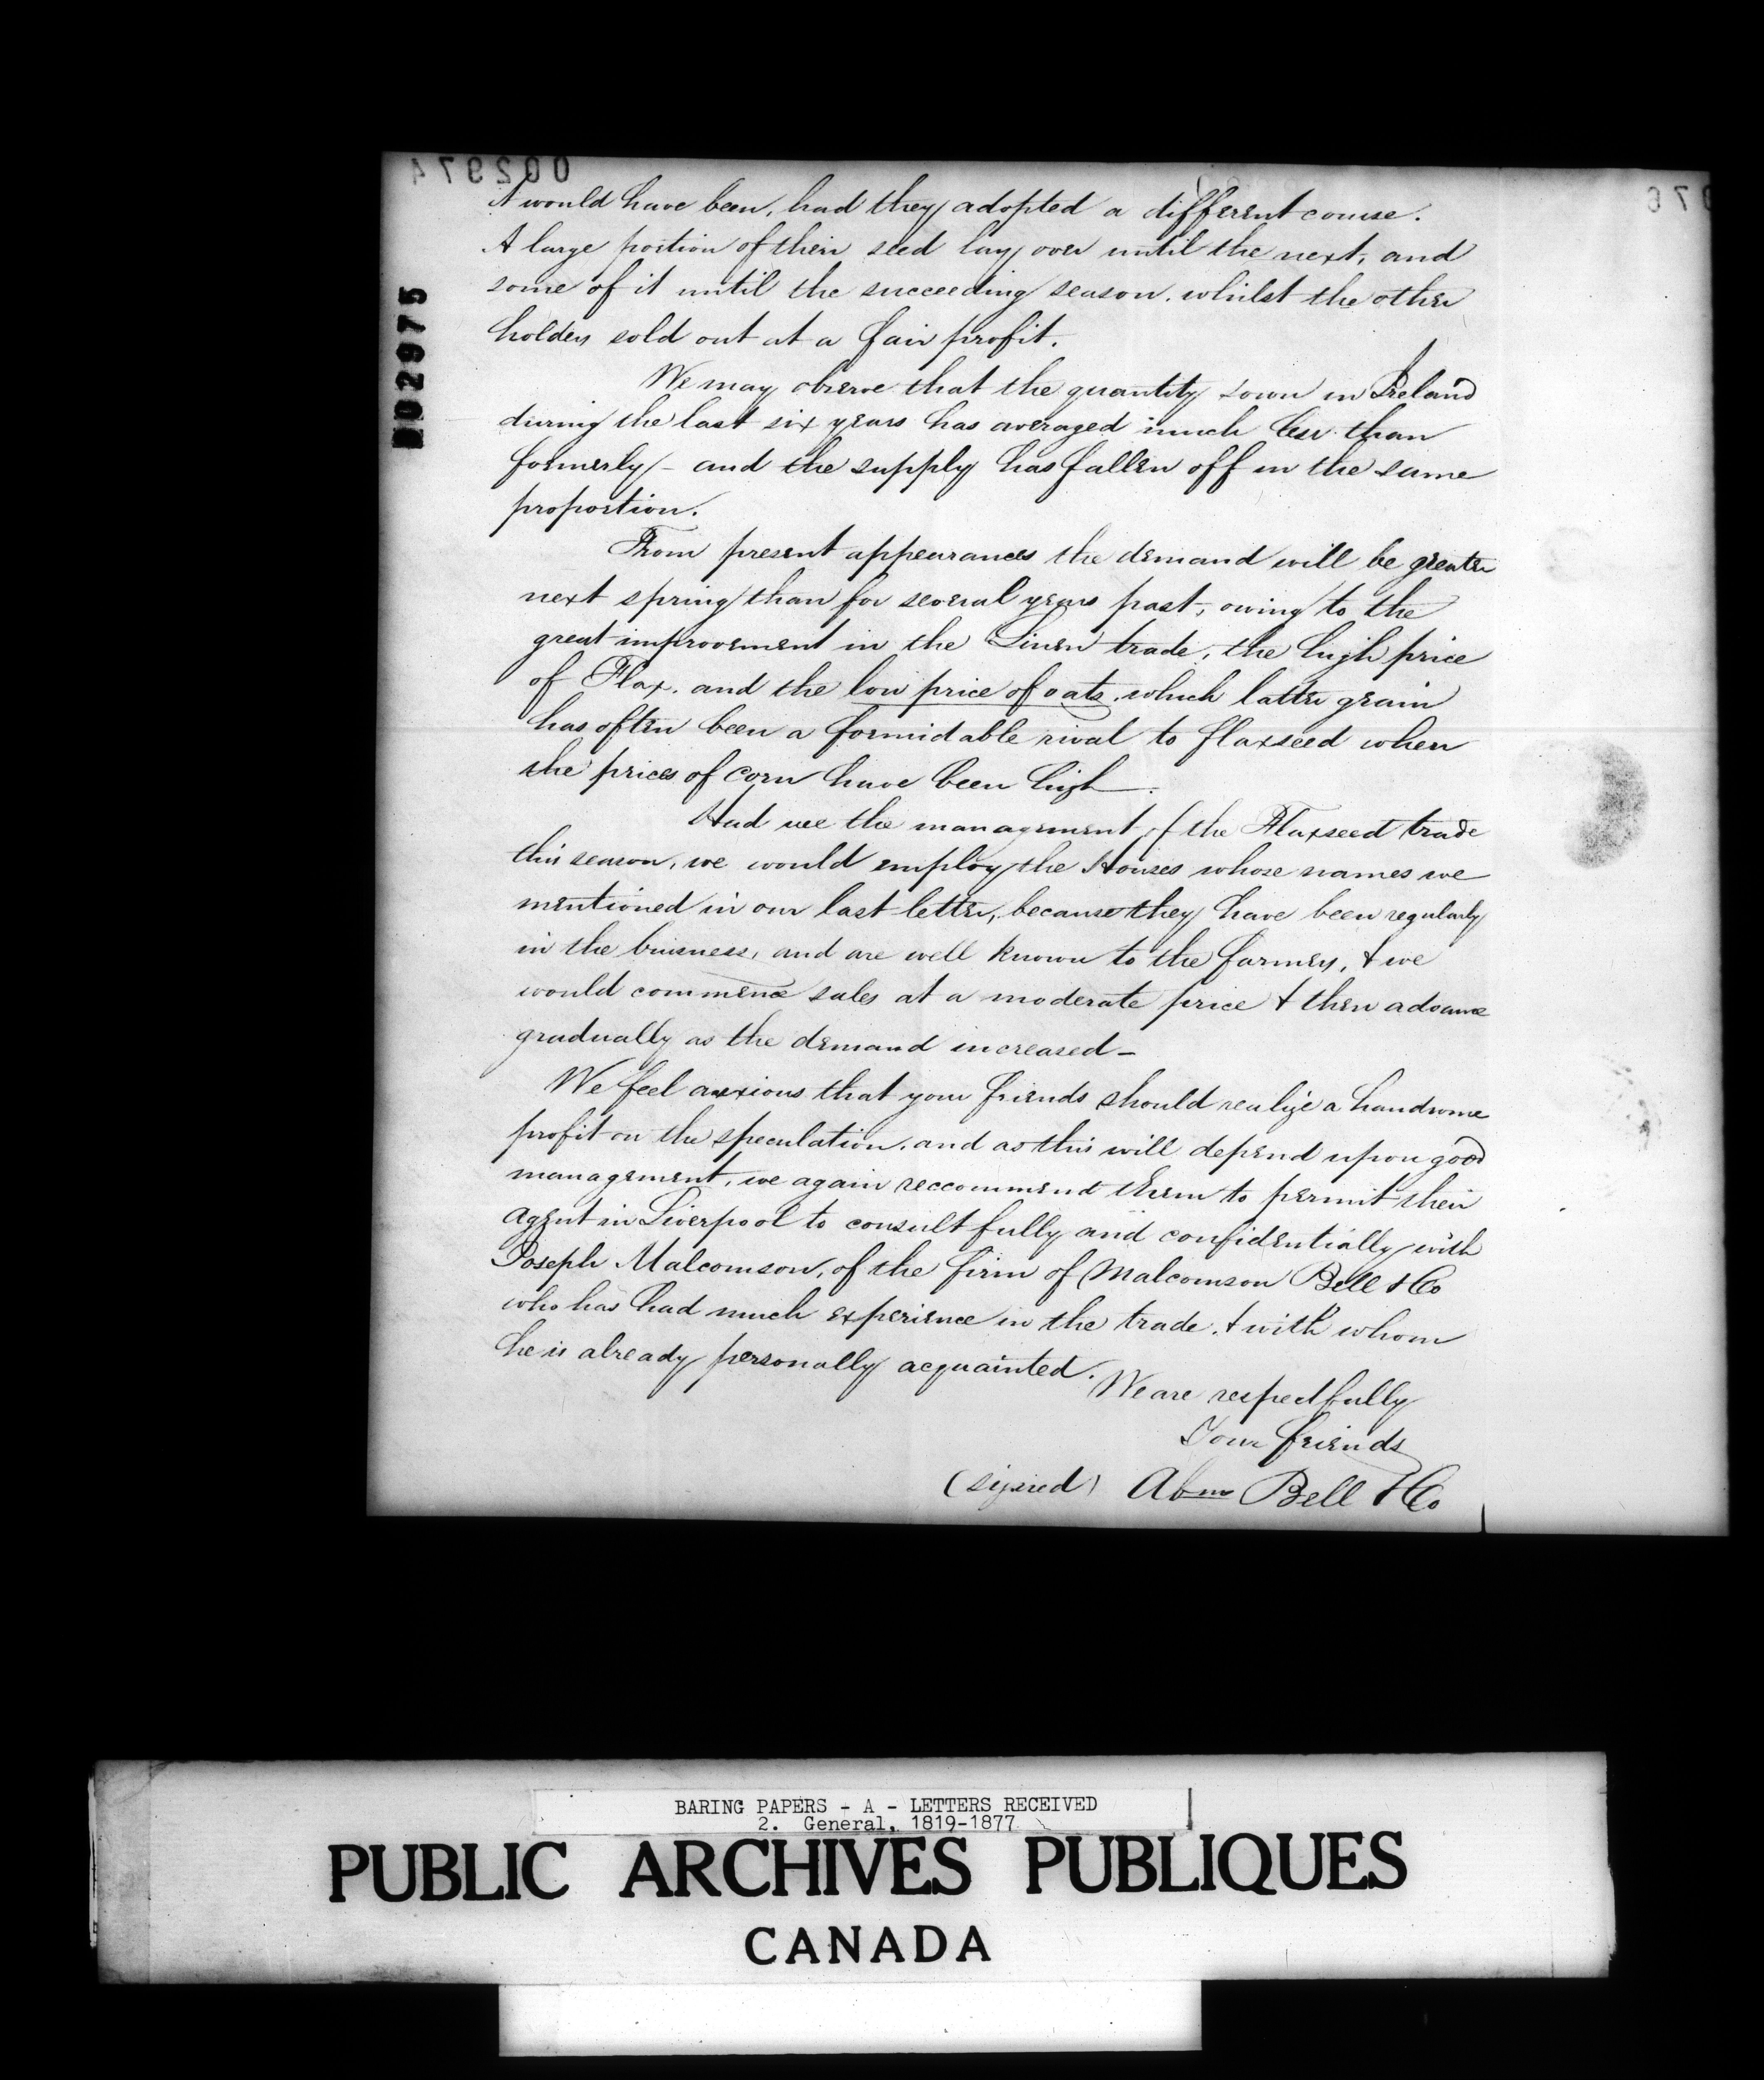 002974
it would have been, had they adopted a different course.
A large portion of their seed lay over until the next, and
some of it until the succeeding season, whilst the other
holders sold out at a fair profit.
We may observe that the quantity sown in Ireland
during the last six years has averaged much less than
formerly - and the supply has fallen off in the same
proportion.
From present appearances the demand will be greater
next spring than for several years past, owing to the
great improvement in the Linen trade, the high price
of Flax, and the low price of oats, which latter grain
has often been a formidable rival to flaxseed when
the prices of corn have been high.
Had we the management of the Flaxseed trade
this season, we would employ the Houses whose names we
mentioned in our last letter, because they have been regularly
in the buisness, and are well known to the farmers, & we
would commence sales at a moderate price & then advance
gradually as the demand increased -
We feel anxious that your friends should realize a handsome
profit on the speculation, and as this will depend upon good
management, we again reccommend them to permit their
agent in Liverpool to consult fully and confidentially with
Joseph Malcomson, of the firm of Malcomson Bell & Co
who has had much experience in the trade, & with whom
he is already personally acquainted.
We are respectfully
Your friends
(signed) Abm Bell & Co
002975
BARING PAPERS - A - LETTERS RECEIVED
2. General, 1819-1877
PUBLIC ARCHIVES PUBLIQUES
CANADA